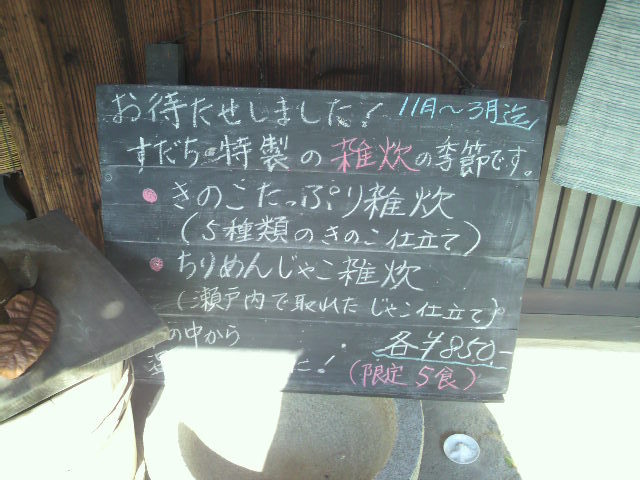 お待たせしました! 11月〜3月迄
すだち・特製の雑炊の季節です。
きのこたっぷり雑炊
(5種類のきのこ仕立て)
ちりめんじゃこ雑炊
(瀬戸内で取れたじゃこ仕立て)
の中から
各¥850.-
!(限定5食)